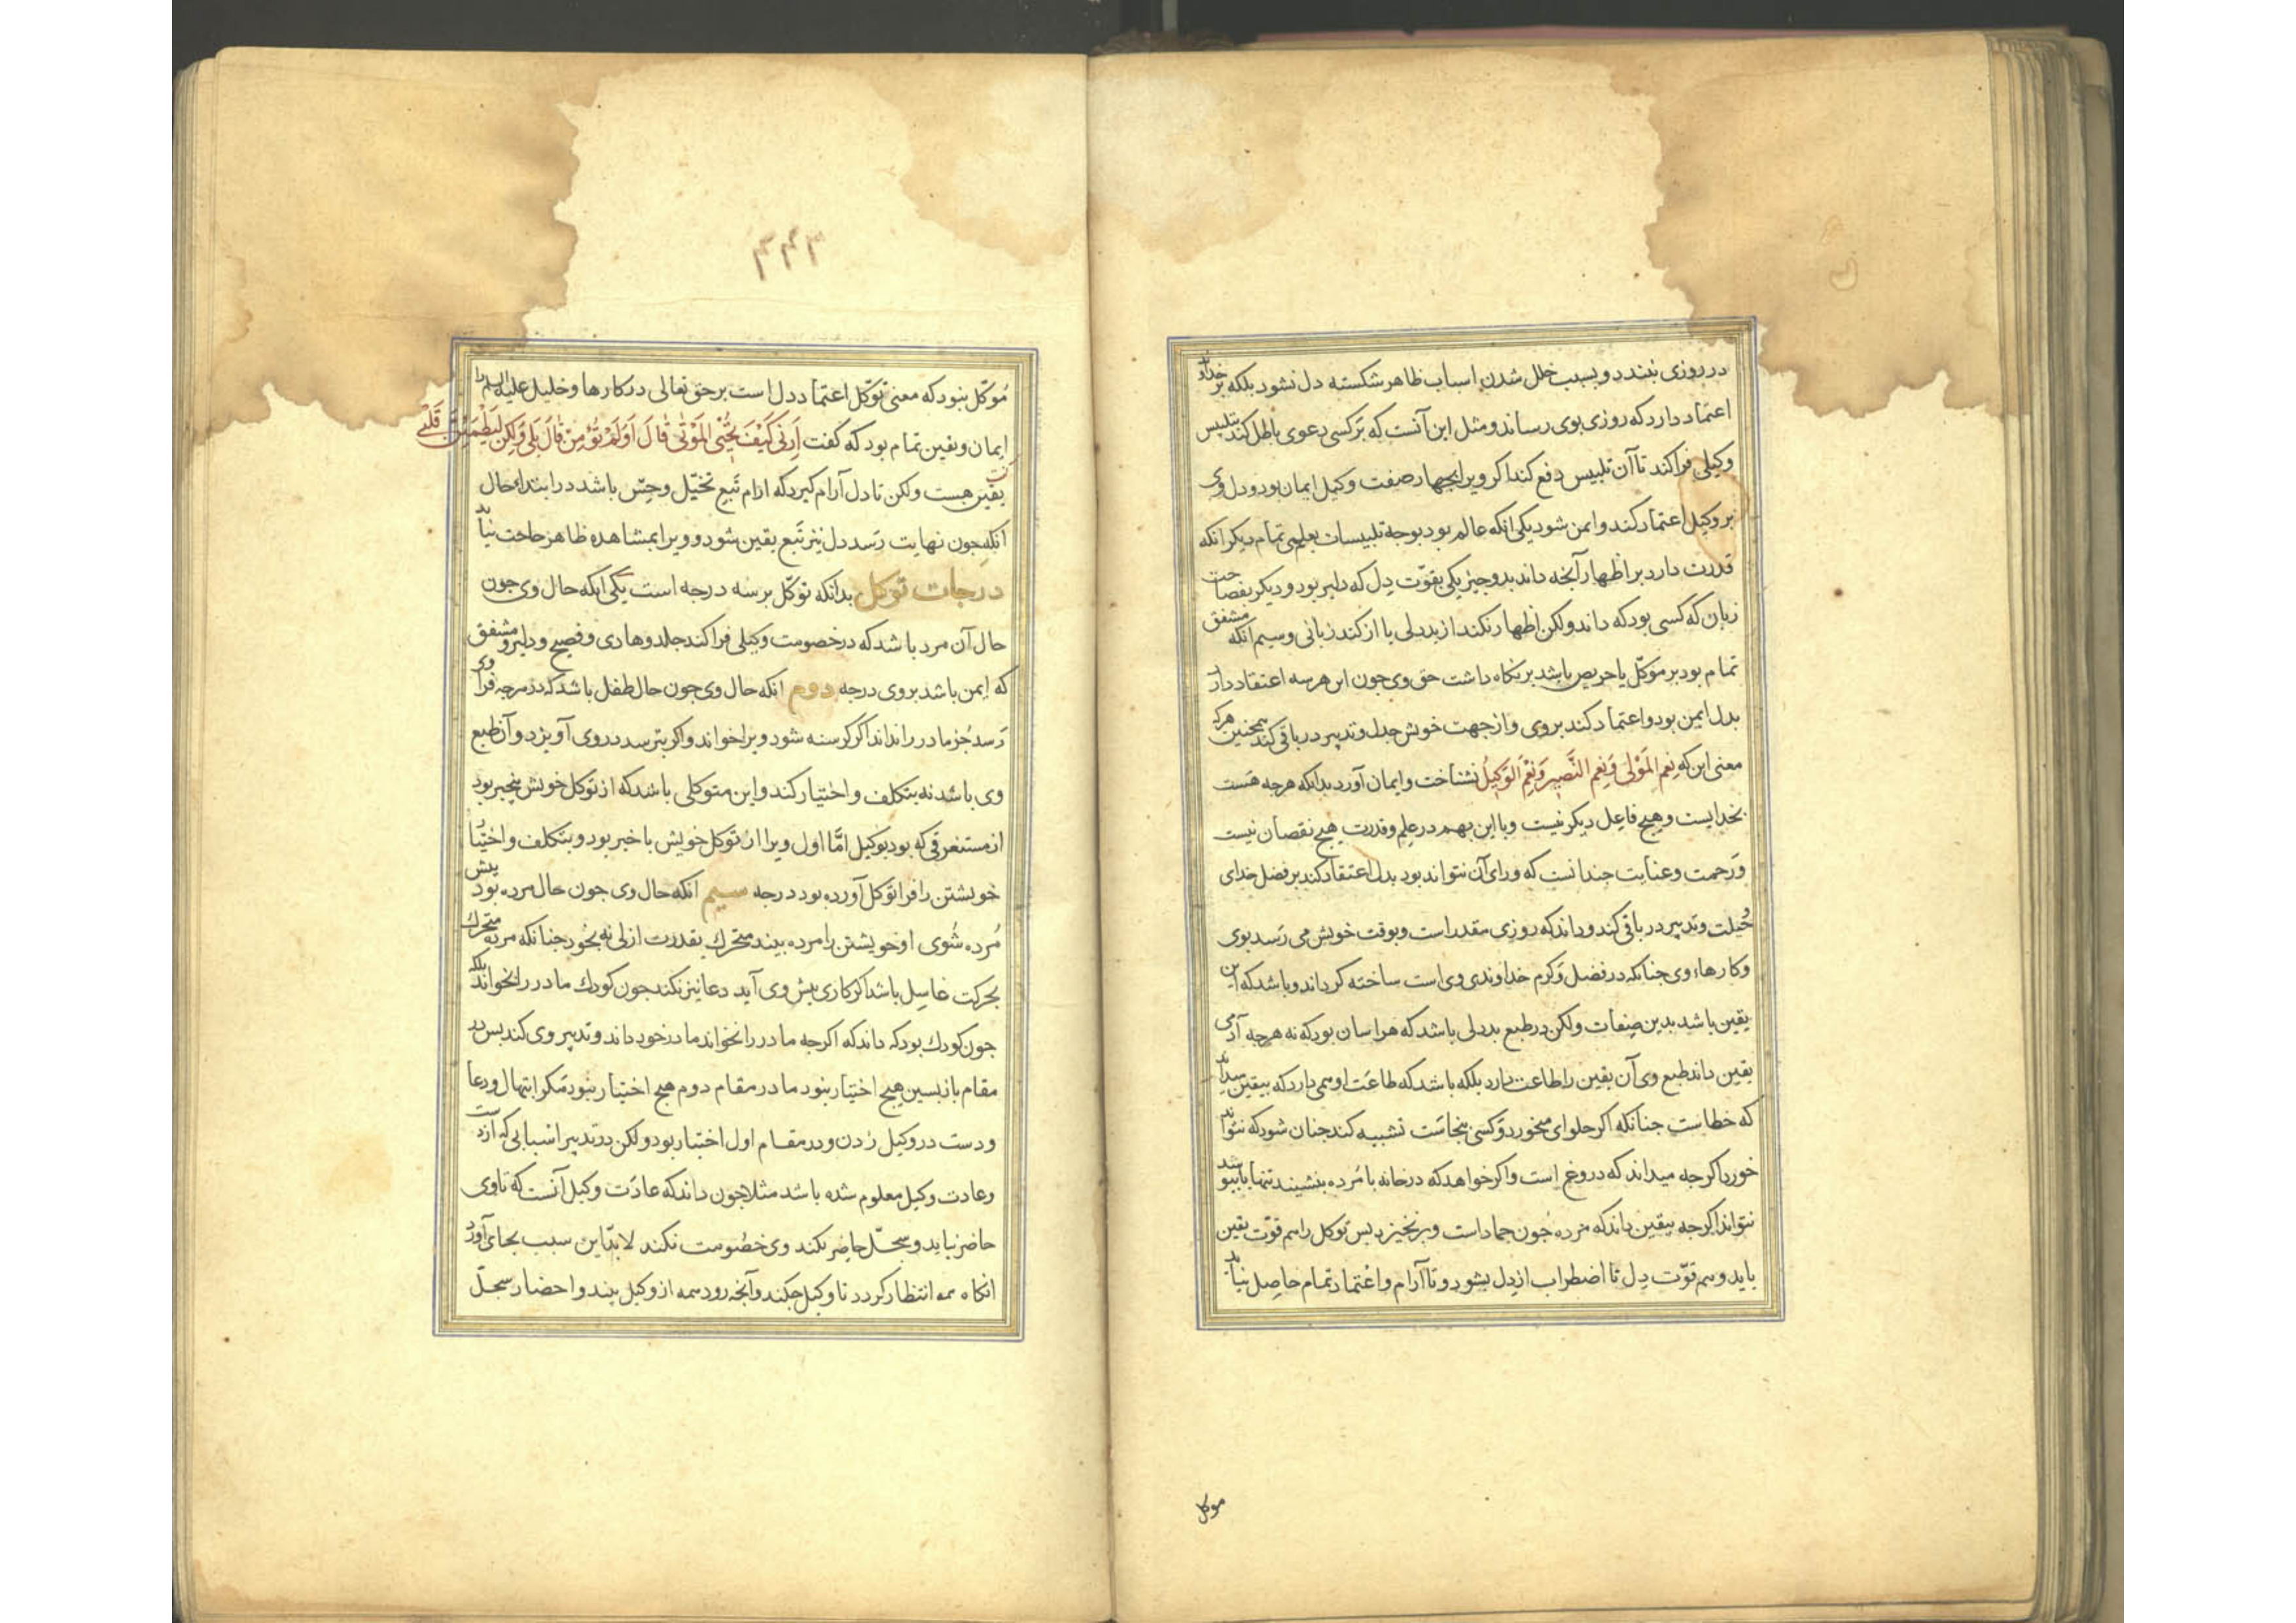 در روزی نبندد و بسبب خلل شدن اسباب ظاهر شکسته دل نشود بلکه بر خداوند
اعتماد دارد که روزی بوی رساند و مثل این آنست که بر کسی دعوی باطل کنند بتلبیس
وکیلی فرا کند تا آن تلبیس دفع کند اکر ویرا بجهار صفت وکیل ایمان بود و دل وی
بر وکیل اعتماد کند و ایمن شود یکی انکه عالم بود بوجه تلبیسات بعلمی تمام دیکر انکه
قدرت دارد بر اظهار آنجه داند بدو جیز یکی بقوّت دل که دلیر بود و دیکر بفصاحت
زبان که کسی بود که داند ولکن اظهار نکند از بددلی یا از کند زبانی و سیم انکه مشفق
تمام بود بر موکّل یا حریص باشد بر نکاه داشت حق وی جون این هر سه اعتقاد دارد
بدل ایمن بود و اعتماد کند بروی و از جهت خویش جدل و تدبیر در باقی کند همجنین هرکه
معنی این که نِعم المَوْلی وَنِعم النَّصِیر وَنِعْمَ الوَکِیلُ بشناخت و ایمان آورد بدانکه هرجه هست
بخدایست و هیچ فاعل دیکر نیست و با این بهم در علم و قدرت هیچ نقصان نیست
و رَحمت و عنایت جندانست که ورای آن نتواند بود بدل اعتقاد کند بر فضل خدای
و حُیلت و تدبیر در باقی کند و داند که روزی مقدر است و بوقت خویش می رَسد بوی
و کارهاء وی جنانکه در فضل و کرم خداوندی وی است ساخته کرداند و باشد که این
یقین باشد بدین صِفات ولکن در طبع بددلی باشد که هراسان بود که نه هرجه آدمی
یقین داند طبع وی آن یقین را طاعت دارد بلکه باشد که طاعَت او می دارد که بیقین میداند
که خطاست جنانکه اکر حلوای میخورد و کسی بنجاسَت تشبیه کند جنان شود که نتواند
خورد اکرجه میداند که دروغ است و اکر خواهد که در خانه با مُرده بنشیند تنها
نتواند اکرجه بیقین داند که مرده جون جماداست و بر نخیزد بس توکل را هم قوّت یقین
باید و هم قوّت دل تا اضطراب از دل بشود و تا آرام و اعتماد تمام حاصل نیاید
موکل
۳۴۳
مُوَکّل نبود که معنی توکّل اعتماد دل است بر حق تعالی در کارها و خلیل علیه السلم را
ایمان و یقین تمام بود که کفت اَرِنِی کَیْفَ تُحْیِی المَوْتٰی قالَ اَوَلَمْ تُؤْمِنْ قالَ بَلٰی وَلکِن لِیَطْمَئِنَّ قَلْبِی کفت
یقین هست ولکن تا دل آرام کیرد که ارام تَبع تخیّل و حِسّ باشد در ابتداء حال
انکه جون نهایت رَسد دل نیز تَبع یقین شود و ویرا بمشاهده ظاهر حاجت نیاید
درجات توکل بدانکه توکّل بر سه درجه است یکی انکه حال وی جون
حال آن مرد باشد که در خصومت وکیلی فرا کند جلد و هادی و فصیح و دلیر و مشفق
که ایمن باشد بروی درجه دوم انکه حال وی جون حال طفل باشد که در هرجه فرا وی
رَسد جُز مادر را نداند اکر کرسنه شود ویرا خواند و اکر بترسد در وی آویزد و آن طبع
وی باشد نه بتکلف و اختیار کند و این متوکلی باشد که از توکل خویش بیخبر بود
از مستغرقی که بود بوکیل امّا اول ویرا از توکل خویش با خبر بود و بتکلف و اختیار
خویشتن را فرا توکل آورده بود درجه سیم انکه حال وی جون حال مرده بود بیش
مُرده شُوی او خویشتن را مرده بیند متحرک بقدرت ازلی نه بخود جنانکه مرده متحرک
بحرکت غاسِل باشد اکر کاری بیش وی آید دعا نیز نکند جون کودک مادر را نخواند بلکه
جون کودک بود که داند که اکرجه مادر را نخواند مادر خود داند و تدبیر وی کند بس در
مقام بازبسین هیچ اختیار نبود ما در مقام دوم هیچ اختیار نبود مکر ابتهال و دعا
و دست در وکیل زدن و در مقام اول اختیار بود ولکن در تدبیر اسبابی که از
وعادت وکیل معلوم شده باشد مثلا جون داند که عادَت وکیل آنست که تا وی
حاضر نیاید و سجلّ حاضر نکند وی خصومت نکند لابدّ این سبب بجای آورد
انکاه همه انتظار کردد تا وکیل جکند و آنجه رود همه از وکیل بیند و احضار سجلّ